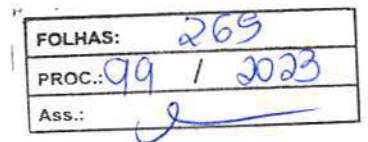 FOLHAS: 269
PROC.: 99 / 2023
Ass.: